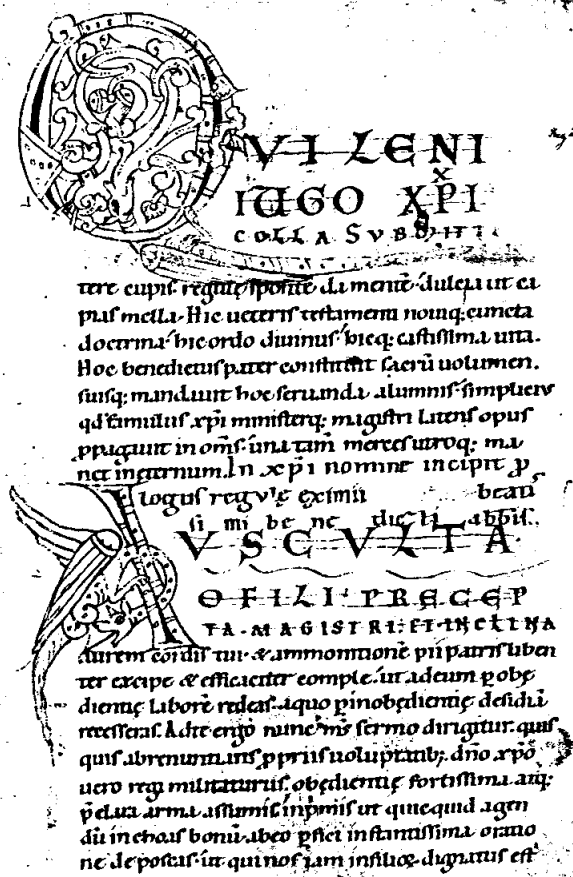 QVI LENI
IUGO XPI
COLLA SUBMIT
tere cupis. regulę sponte da mente. dulcia ut ca
pias mella. Hic ueteris testamenti nouiq; cuncta
doctrina. hic ordo diuinus. hicq; castissima uita.
Hoc benedictus pater constituit sacrū uolumen.
suisq; mandauit hoc seruanda alumnis. simplicius
qd famulus xp̄i ministerq; magistri
in om̄s. una tam̄ merces utroq; ma
net in ęternum. In xp̄i nomine incipit p
logus regulę eximii beati
si mi be ne dicti abbis.
AVSCVLTA
O FILI PRECEP
TA MAGISTRI ET INCLINA
aurem cordis tui. & ammonitionē pii patris liben
ter excipe & efficaciter comple. ut ad eum p obę
dientię laborē redeas. a quo p inobędientię desidiā
recesseras. Ad te ergo nunc m̄s sermo dirigitur. quis
quis abrenuntians ppriis uoluptatib; dn̄o xp̄o
uero regi militaturus. obędientię fortissima atq;
pclara arma assumis. inp̄mis ut quicquid agen
dū inchoas bonū. ab eo pfici instantissima oratio
ne deposcas. ut qui nos iam in filioꝝ dignatus est